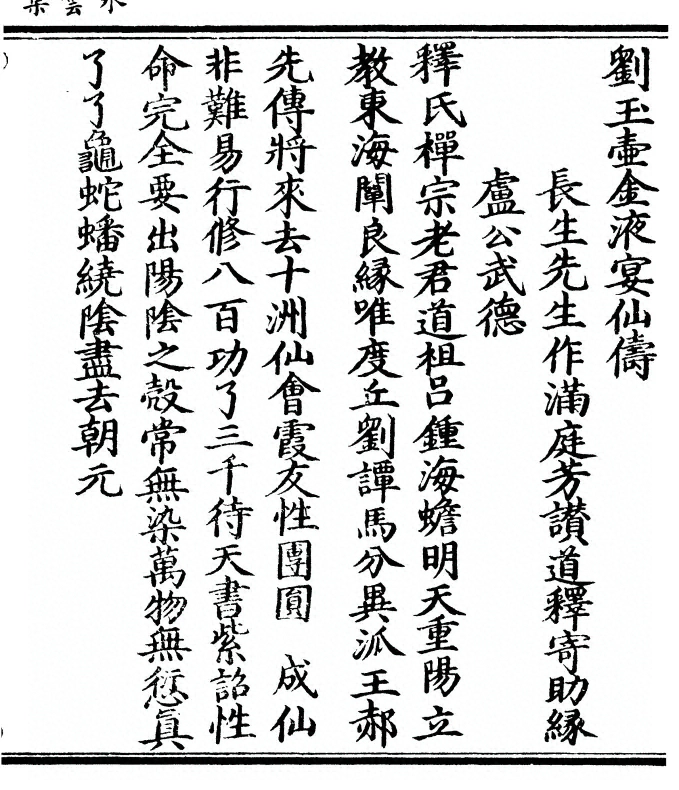 劉玉壺金液宴仙儔
長生先生作滿庭芳讃道釋寄助縁
盧公武德
釋氏樿宗老君道祖吕鍾海蟾明天重陽立
教東海闡良縁唯度丘劉譚馬分異派王郝
先傳將來去十洲仙會霞友性團圓　成仙
非難易行修八百功了三千待天書紫詔性
命完全要出陽陰之殻常無染萬物無愆眞
了了龜蛇蟠繞陰盡去朝元